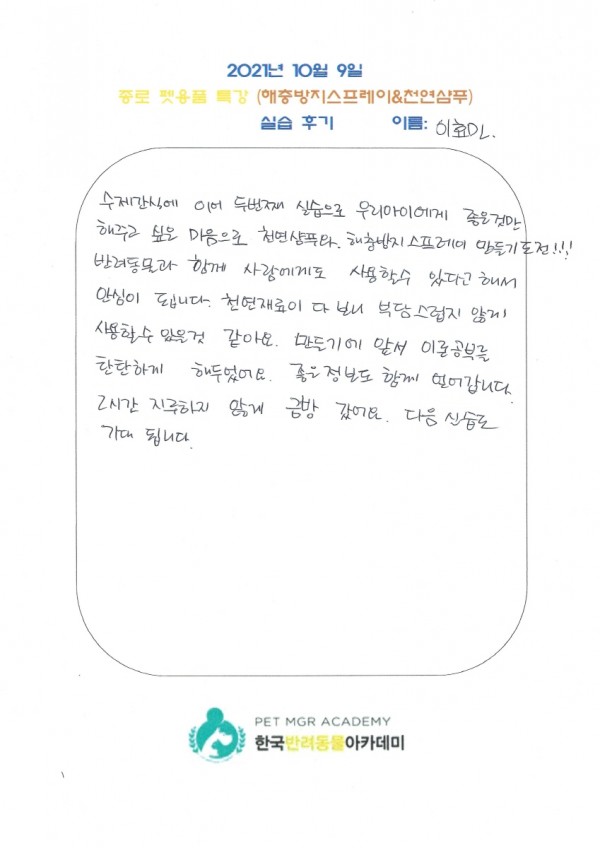 2021년 10월 9일
종로 펫용품 특강 (해충방지스프레이&천연샴푸)
실습 후기 이름:
수제간식에 이어 두번째 실습으로 우리아이에게 좋은것만
해주고 싶은 마음으로 천연샴푸와. 해충방지스프레이 만들기 도전!!!
반려동물과 함께 사랑에게도 사용할수 있다고 해서
안심이 됩니다. 천연재료이 다 보니 부담스럽지 않게
사용할수 있을것 같아요. 만들기에 앞서 이론공부를
탄탄하게 해두었어요. 좋은정보도 함께 얻어갑니다.
2시간 지루하지 않게 금방 갔어요. 다음 실습도
기대 됩니다.
PET MGR ACADEMY
한국반려동물아카데미